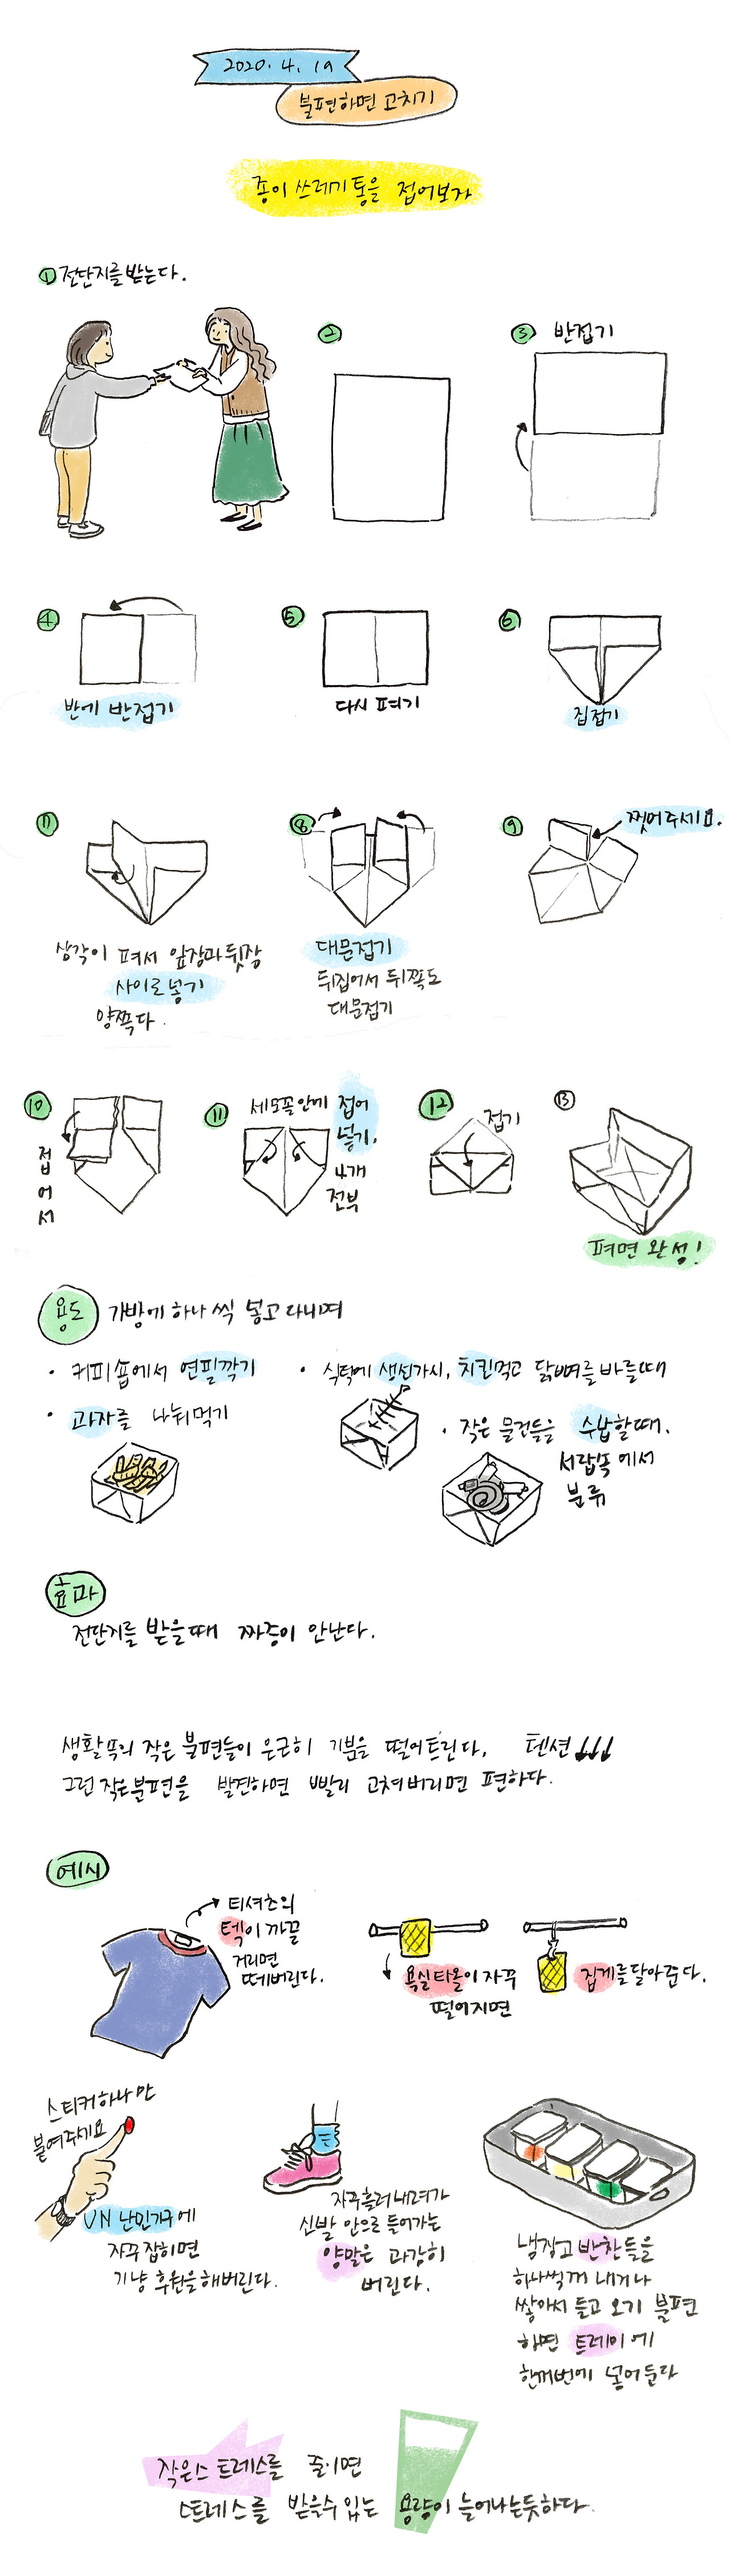 2020. 4. 19
불편하면 고치기
종이 쓰레기통을 접어보자
① 전단지를 받는다.
②
③ 반접기
④
반에 반접기
⑤
다시 펴기
⑥
집접기
⑦
삼각이 펴서 앞장과 뒷장
사이로 넣기
양쪽다.
⑧
대문접기
뒤집어서 뒤쪽도
대문접기
⑨ 찢어주세요.
⑩
접
어
서
⑪ 세모꼴안에 접어
넣기.
4개
전부
⑫ 접기
⑬
펴면 완성!
용도 가방에 하나 씩 넣고 다니며
· 커피숍에서 연필깎기
· 과자를 나눠먹기
· 식탁에 생선가시, 치킨먹고 닭뼈를 바를때
· 작은 물건들을 수납할때.
서랍속에서
분류
효과
전단지를 받을때 짜증이 안난다.
생활속의 작은 불편들이 은근히 기분을 떨어트린다. 텐션↓↓↓
그런 작은불편을 발견하면 빨리 고쳐버리면 편하다.
예시
티셔츠의
텍이 까끌
거리면
떼버린다.
욕실타올이 자꾸
떨어지면
집게를 달아준다.
스티커하나만
붙여주세요
UN 난민기구에
자꾸 잡히면
기냥 후원을해버린다.
자꾸흘러내려가
신발 안으로 들어가는
양말은 과감히
버린다.
냉장고 반찬들을
하나씩꺼내거나
쌓아서 들고 오기 불편
하면 트레이에
한꺼번에 넣어둔다
작은스트레스를 줄이면
스트레스를 받을수있는 용량이 늘어나는듯하다.